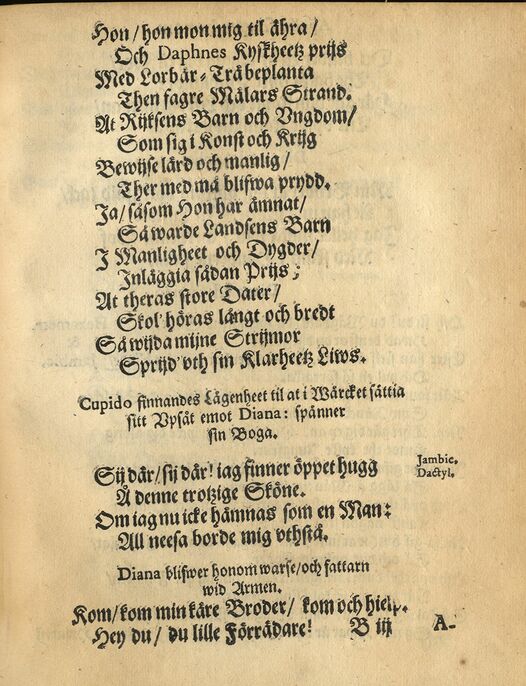 Hon/ hon mon mig til ähra/
Och Daphnes Kyskheetz prijs
Med Lorbär-Träbeplanta
Then fagre Mälars Strand.
At Rijksens Barn och Vngdom/
Som sig i Konst och Krijg
Bewijse lärd och manlig/
Ther med må blifwa prydd.
Ja/ såsom Hon har ämnat/
Så warde Landsens Barn
J Manligheet och Dygder/
Jnläggia sådan Prijs;
At theras store Dater/
Skol' höras långt och bredt
Så wijda mijne Strijmor
Sprijd' vth sin Klarheetz Liws.
Cupido finnandes Lägenheet til at i Wärcket sättia
sitt Vpsåt emot Diana: spänner
sin Boga.
Sij där/ sij där! iag finner öppet hugg
Jambic.
Dactyl.
Å denne trotzige Sköne.
Om iag nu icke hämnas som en Man:
All neesa borde mig vthstå.
Diana blifwer honom warse/ och fattarn
wid Armen.
Kom/ kom min käre Broder/ kom och hielp.
Hey du/ du lille Förrädare!
B iij
A-